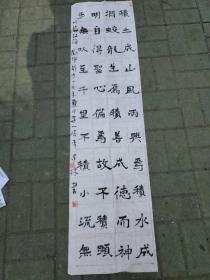 積土成山風雨興焉積水成
淵蛟龍生焉積善成德而神
明自得聖心備焉故不積蹞
步無以至千里不積小流無
以成江海